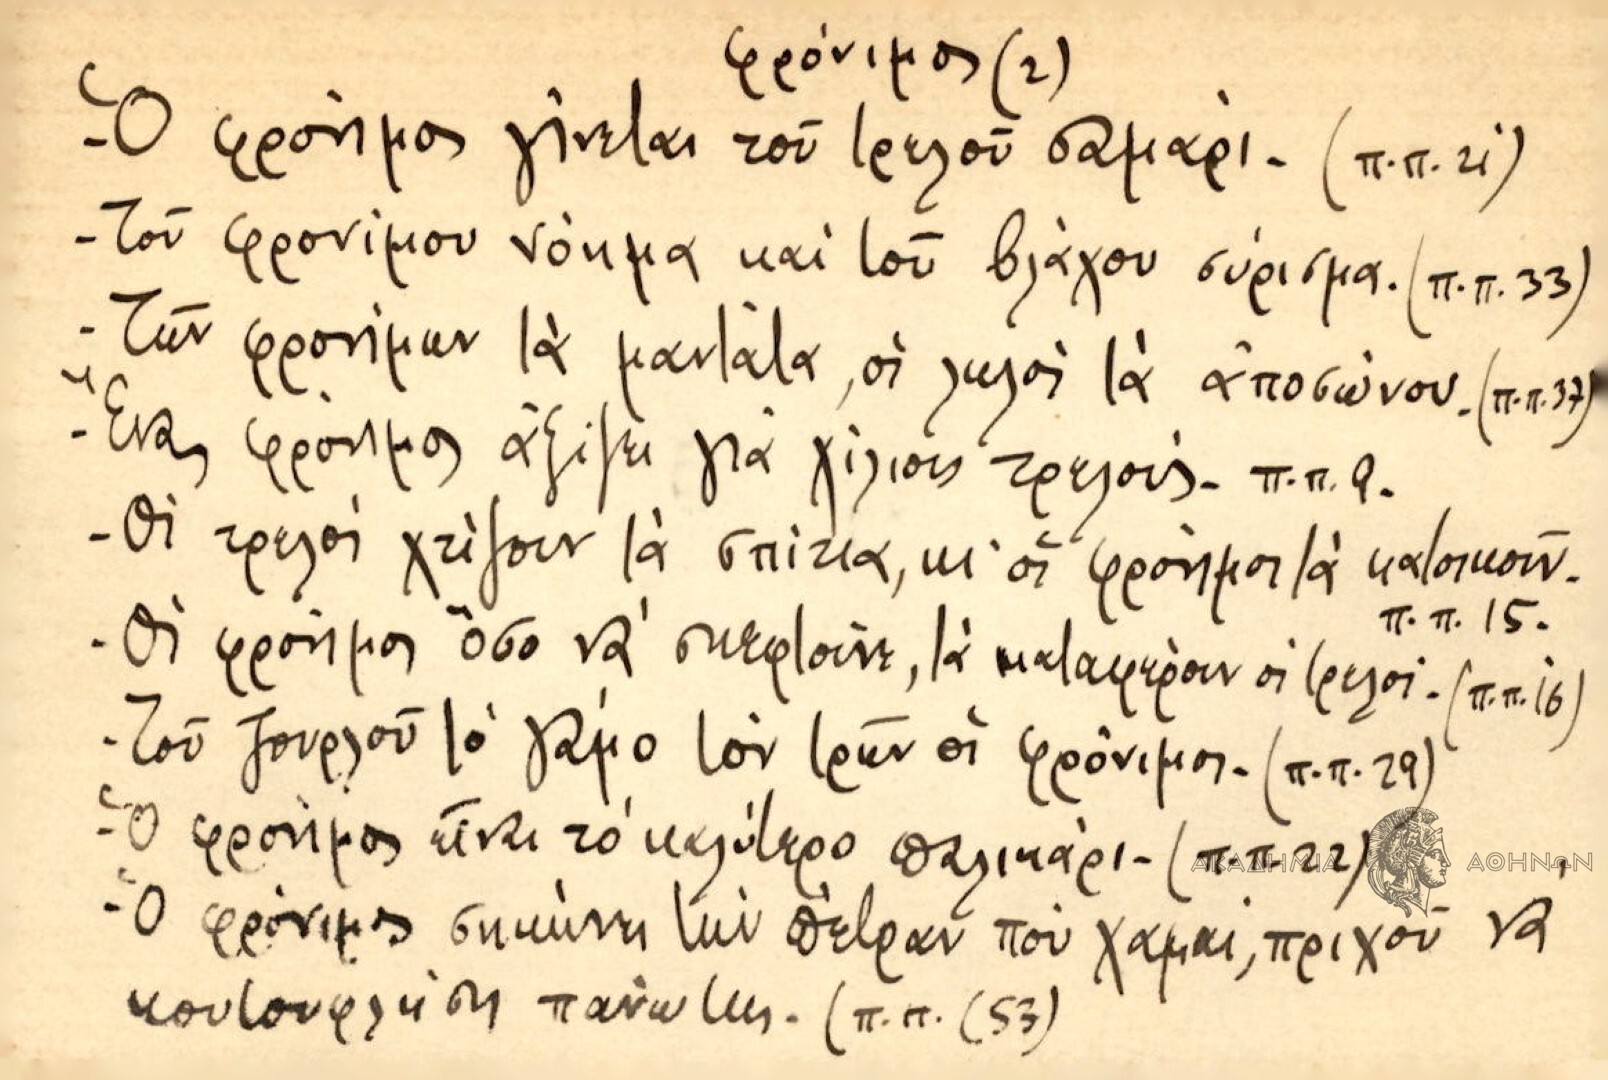 φρόνιμος (2)
- Ὁ φρόνιμος γίνεται τοῦ τρελοῦ σαμάρι. (π.π. 21)
- Τοῦ φρονίμου νόημα καί τοῦ βλάχου σύρισμα. (π.π. 33)
- Τῶν φρονίμων τά μαντάτα, οἱ λωλοί τά ἀποσώνου. (π.π. 37)
- Ἕνας φρόνιμος ἀξίζει γιά χίλιους τρελούς. π.π. 9.
- Οἱ τρελοί χτίζουν τά σπίτια, κι' οἱ φρόνιμοι τά κατοικοῦν.
π.π. 15.
- Οἱ φρόνιμοι ὅσο νά σκεφτοῦνε, τά καταφέρουν οἱ τρελοί. (π.π. 16)
- Τοῦ ζουρλοῦ τό γάμο τόν τρῶν οἱ φρόνιμοι. (π.π. 29)
- Ὁ φρόνιμος εἶναι τό καλύτερο παλικάρι. (π.π. 22)
ΑΚΑΔΗΜΙΑ ΑΘΗΝΩΝ
- Ὁ φρόνιμος σηκώνει τήν πέτραν πού χαμαί, πριχοῦ νά
κουτουφλήση πάνω της. (π.π. (53)